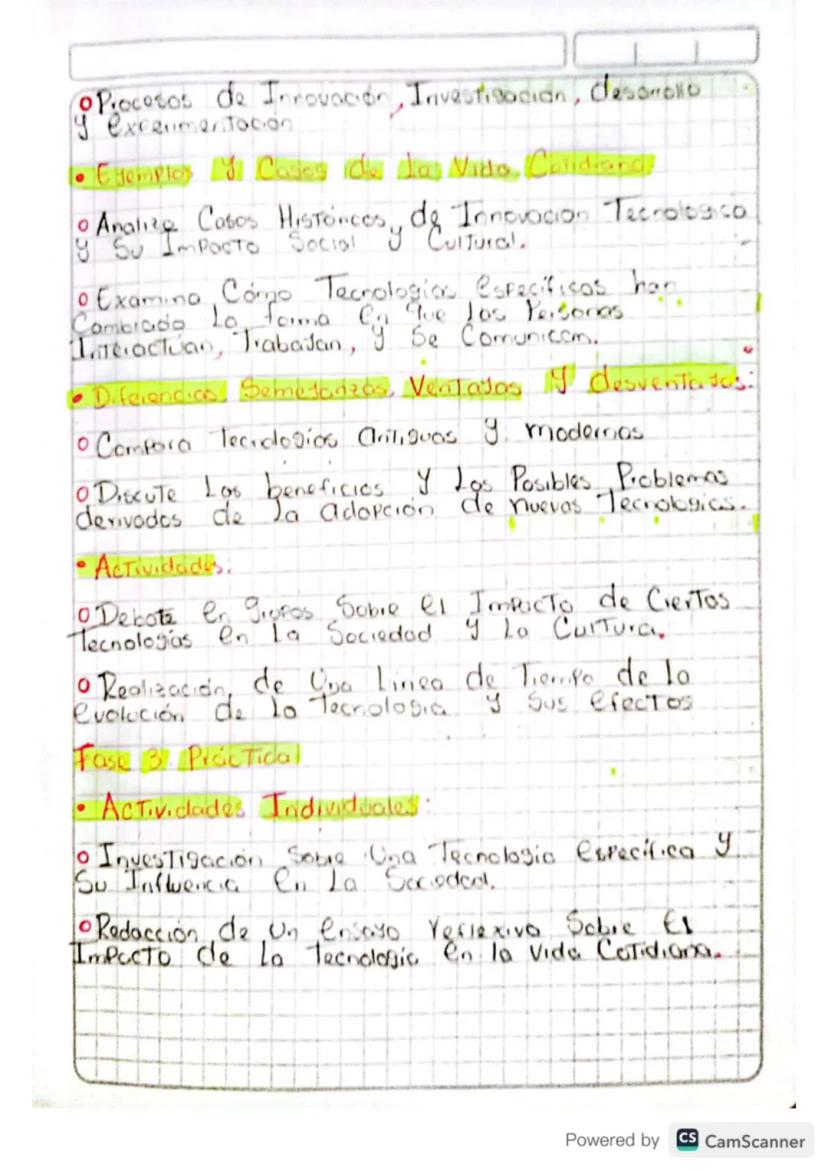 o Procesos de Innovación, Investigación, desarrollo
y experimentación
• Ejemplos y Casos de la Vida Cotidiana
o Analiza Casos Históricos, de Innovacion Tecnologica
y Su Impacto Social y Cultural.
o Examina Cómo Tecnologías específicas han
Cambiado La forma En que las Personas
Interactúan, Trabajan, y Se Comunican.
• Diferencias Semejanzas, Ventajas Y desventajas:
o Compara Tecnologías antiguas y modernas
o Discute Los beneficios Y Los Posibles Problemas
derivados de la adopción de nuevas Tecnologias.
• Actividades:
o Debate en grupos Sobre el Impacto de Ciertas
Tecnologías en la Sociedad y La Cultura.
o Realización, de Una Linea de Tiempo de la
evolución de la Tecnologia y Sus efectos
Fase 3 Práctica
• Actividades Individuales:
o Investigación Sobre Una Tecnologia específica y
Su Influencia En La Sociedad.
o Redacción de Un ensayo reflexivo Sobre El
Impacto de La Tecnologia en la Vida Cotidiana.
Powered by CS CamScanner